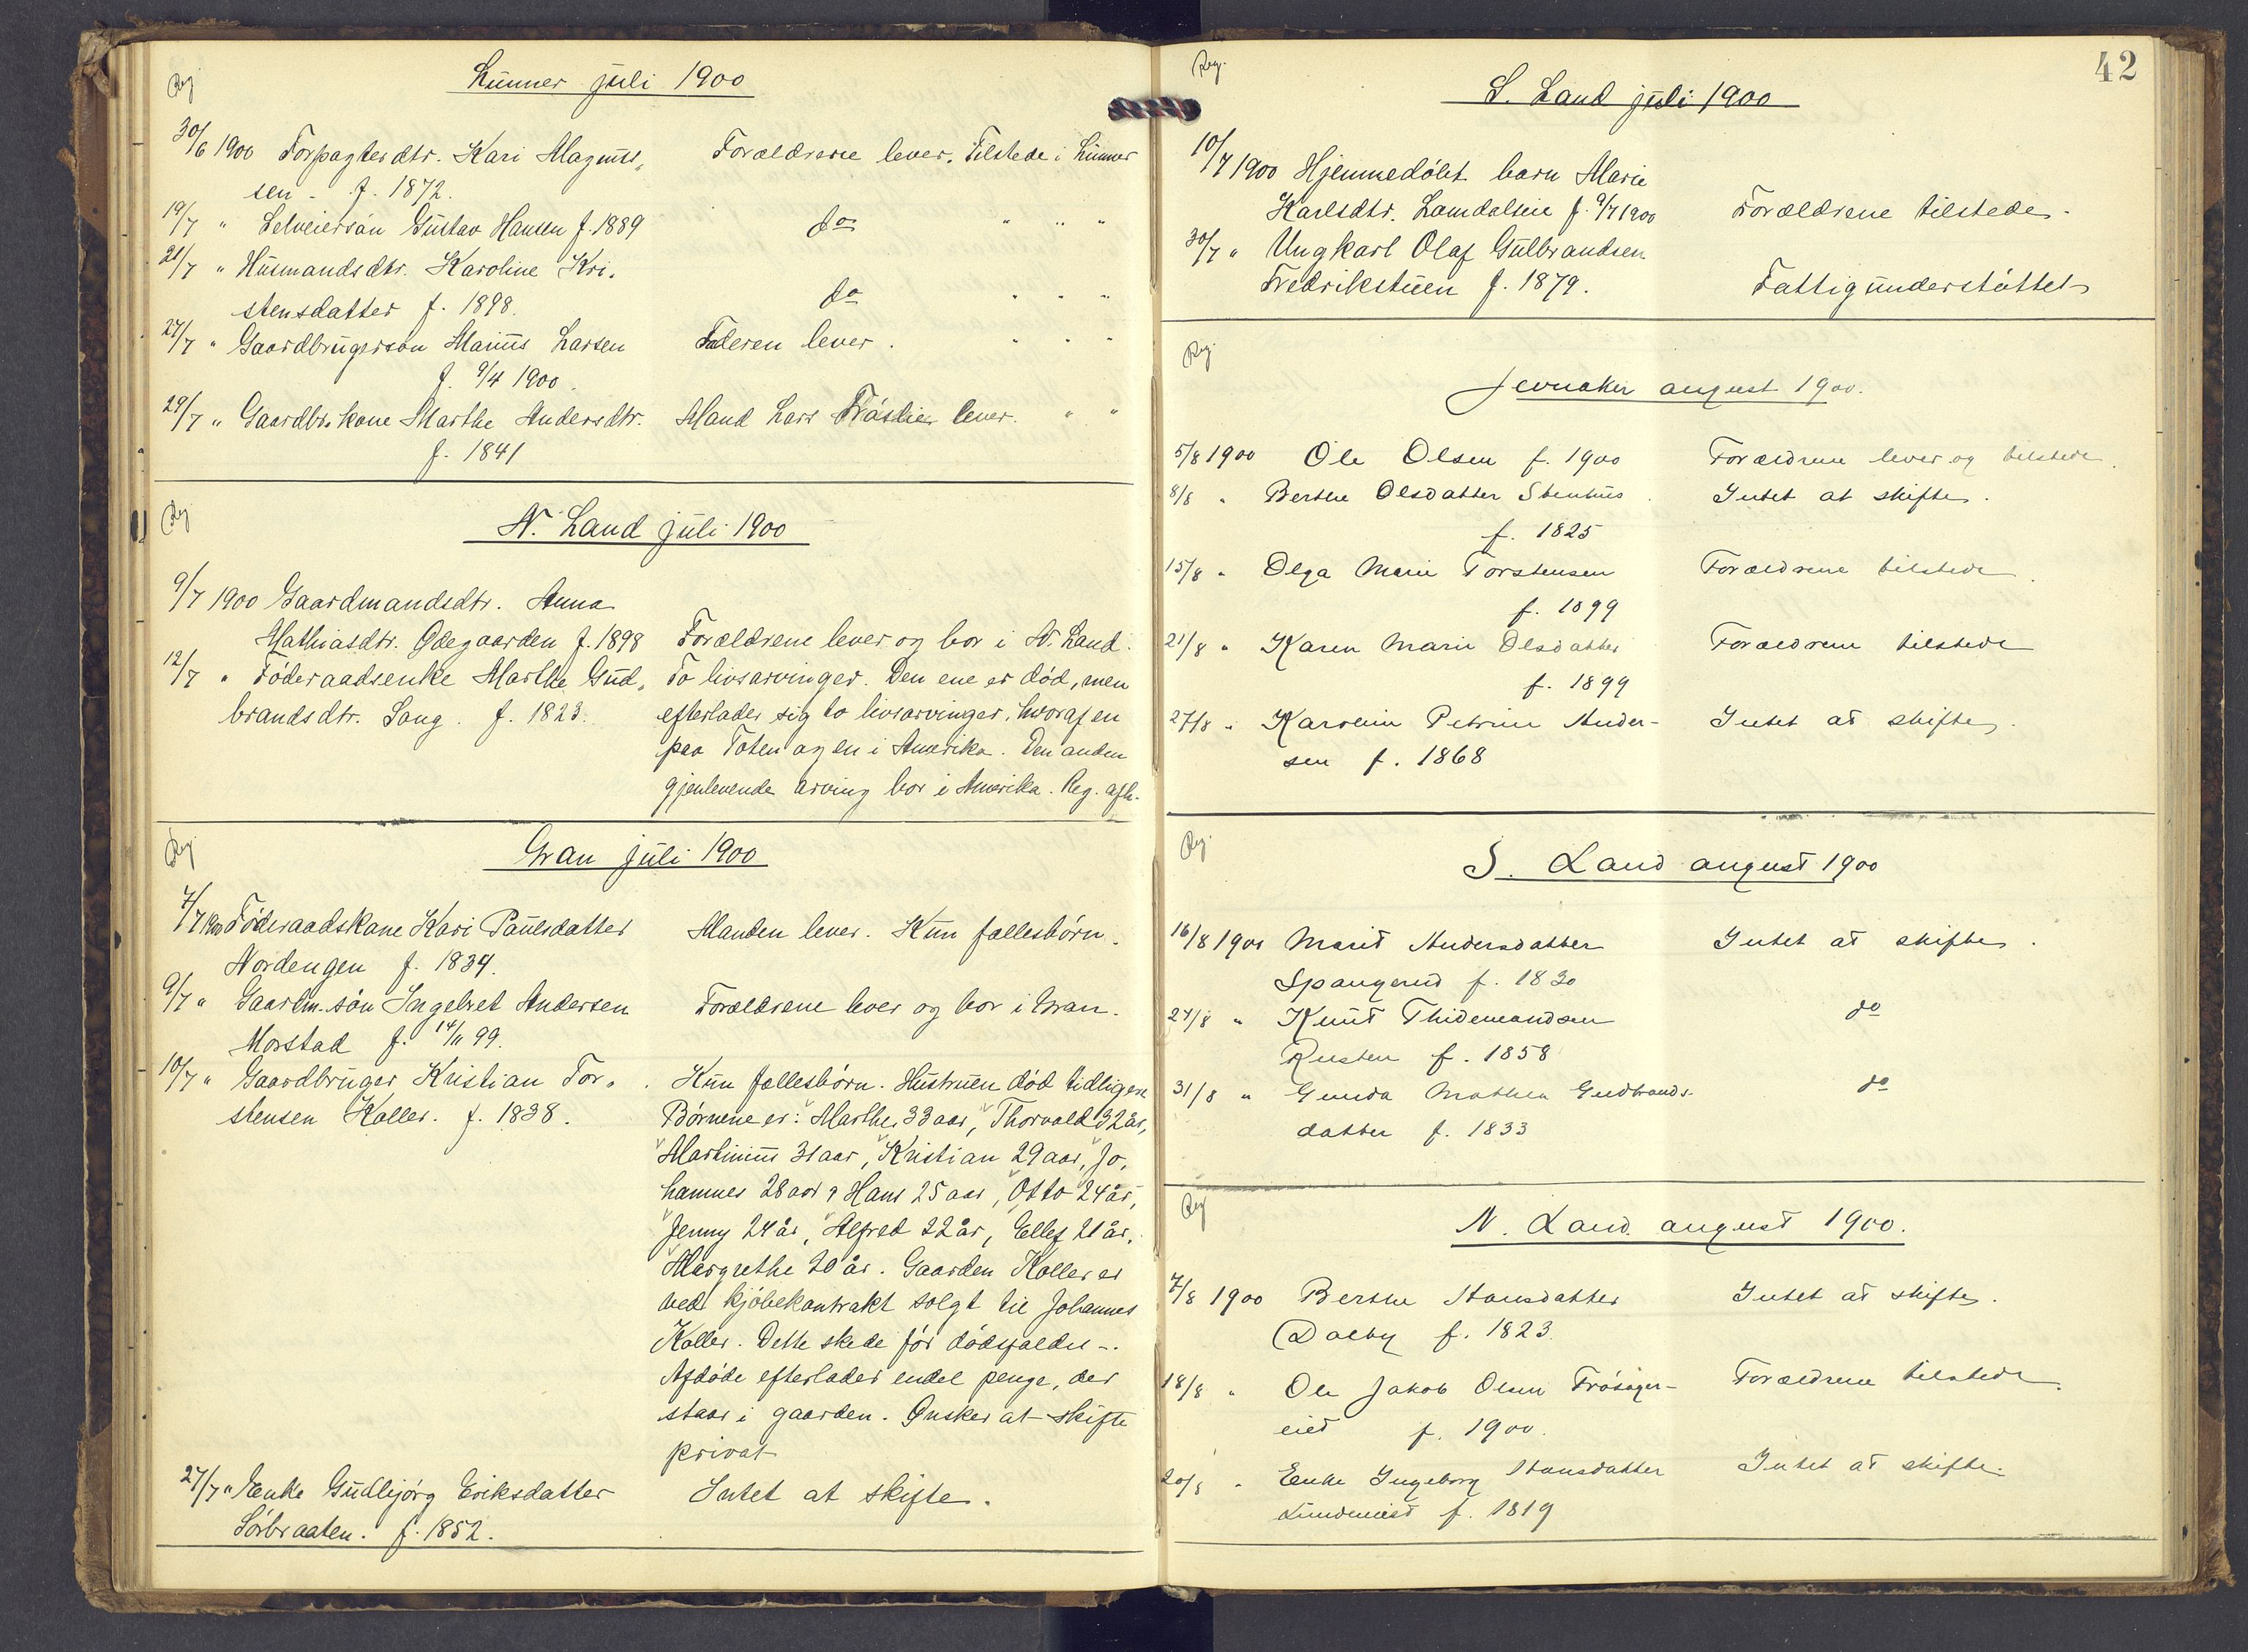 Reg
Lunner juli 1900
30/6 1900 Forpagterdtr. Kari Magnus-
sen - f. 1872.
Forældrene lever. Tilstede i Lunner
19/7 " Selveiersøn Gustav Hansen f. 1889
do " " "
21/7 " Husmandsdtr. Karoline Kri-
stensdatter f. 1898.
do " " "
27/7 " Gaardbrugersøn Marius Larsen
f. 9/4 1900.
Faderen lever. " " "
29/7 " Gaardbr.kone Marthe Andersdtr.
f. 1841
Mand Lars lever. " "
Reg
N. Land juli 1900
9/7 1900 Gaardmandsdtr. Anna
Mathiasdtr. Ødegaarden f. 1898
Forældrene lever og bor i N. Land.
12/7 " Føderaadsenke Marthe Gud-
brandsdtr. Saug. f. 1823.
To livsarvinger. Den ene er død, men
efterlader sig to livsarvinger, hvoraf en
paa Toten og en i Amerika. Den anden
gjenlevende arving bor i Amerika. Reg. afh.
Reg
Gran juli 1900
7/7 1900 Føderaadskone Kari Paulsdatter
Nordengen f. 1834.
Manden lever. Kun fællesbørn.
9/7 " Gaardm.søn Ingebret Andersen
Morstad f. 14/11 99.
Forældrene lever og bor i Gran.
10/7 " Gaardbruger Kristian Tor-
stensen Koller. f. 1838.
Kun fællesbørn. Hustruen død tidligere
Børnene er: Marthe 33 aar, Thorvald 32 år,
Martinius 31 aar, Kristian 29 aar, Jo-
hannes 28 aar, Hans 25 aar, Otto 24 år,
Jenny 24 år, Alfred 22 år, Ellef 21 år,
Margrethe 20 år. Gaarden Koller er
ved kjøbekontrakt solgt til Johannes
Koller. Dette skede før dødsfaldet -.
Afdøde efterlader endel penge, der
staar i gaarden. Ønsker at skifte
privat
27/7 " Enke Gudbjørg Eriksdatter
Sørbraaten. f. 1852.
Intet at skifte.
42
Reg.
S. Land juli 1900
10/7 1900 Hjemmedøbt barn Marie
Karlsdtr. Lomdalseie f. 9/7 1900
Forældrene tilstede.
30/7 " Ungkarl Olaf Gulbrandsen
Fredrikstuen f. 1879.
Fattigunderstøttet
Reg.
Jevnaker august 1900.
5/8 1900 Ole Olsen f. 1900
Forældrene lever og tilstede.
8/8 " Berthe Olsdatter Stenhus
f. 1825
Intet at skifte.
15/8 " Olga Marie Torstensen
f. 1899
Forældrene tilstede.
21/8 " Karen Marie Olsdatter
f. 1899
Forældrene tilstede
27/8 " Karoline Petrine Ander-
sen f. 1868
Intet at skifte.
Reg.
S. Land august 1900
16/8 1900 Marit Andersdatter
Spangerud f. 1830
Intet at skifte.
27/8 " Knut Thidemandsen
Rusten f. 1858
do
31/8 " Gunda Mathea Gudbrands-
datter f. 1833
do
Reg
N. Land august 1900.
7/8 1900 Berthe Hansdatter
Dalby f. 1823.
Intet at skifte.
18/8 " Ole Jakob Olsen Frøsaker-
eiet f. 1900.
Forældrene tilstede.
20/8 " Enke Ingeborg Hansdatter
f. 1819
Intet at skifte.